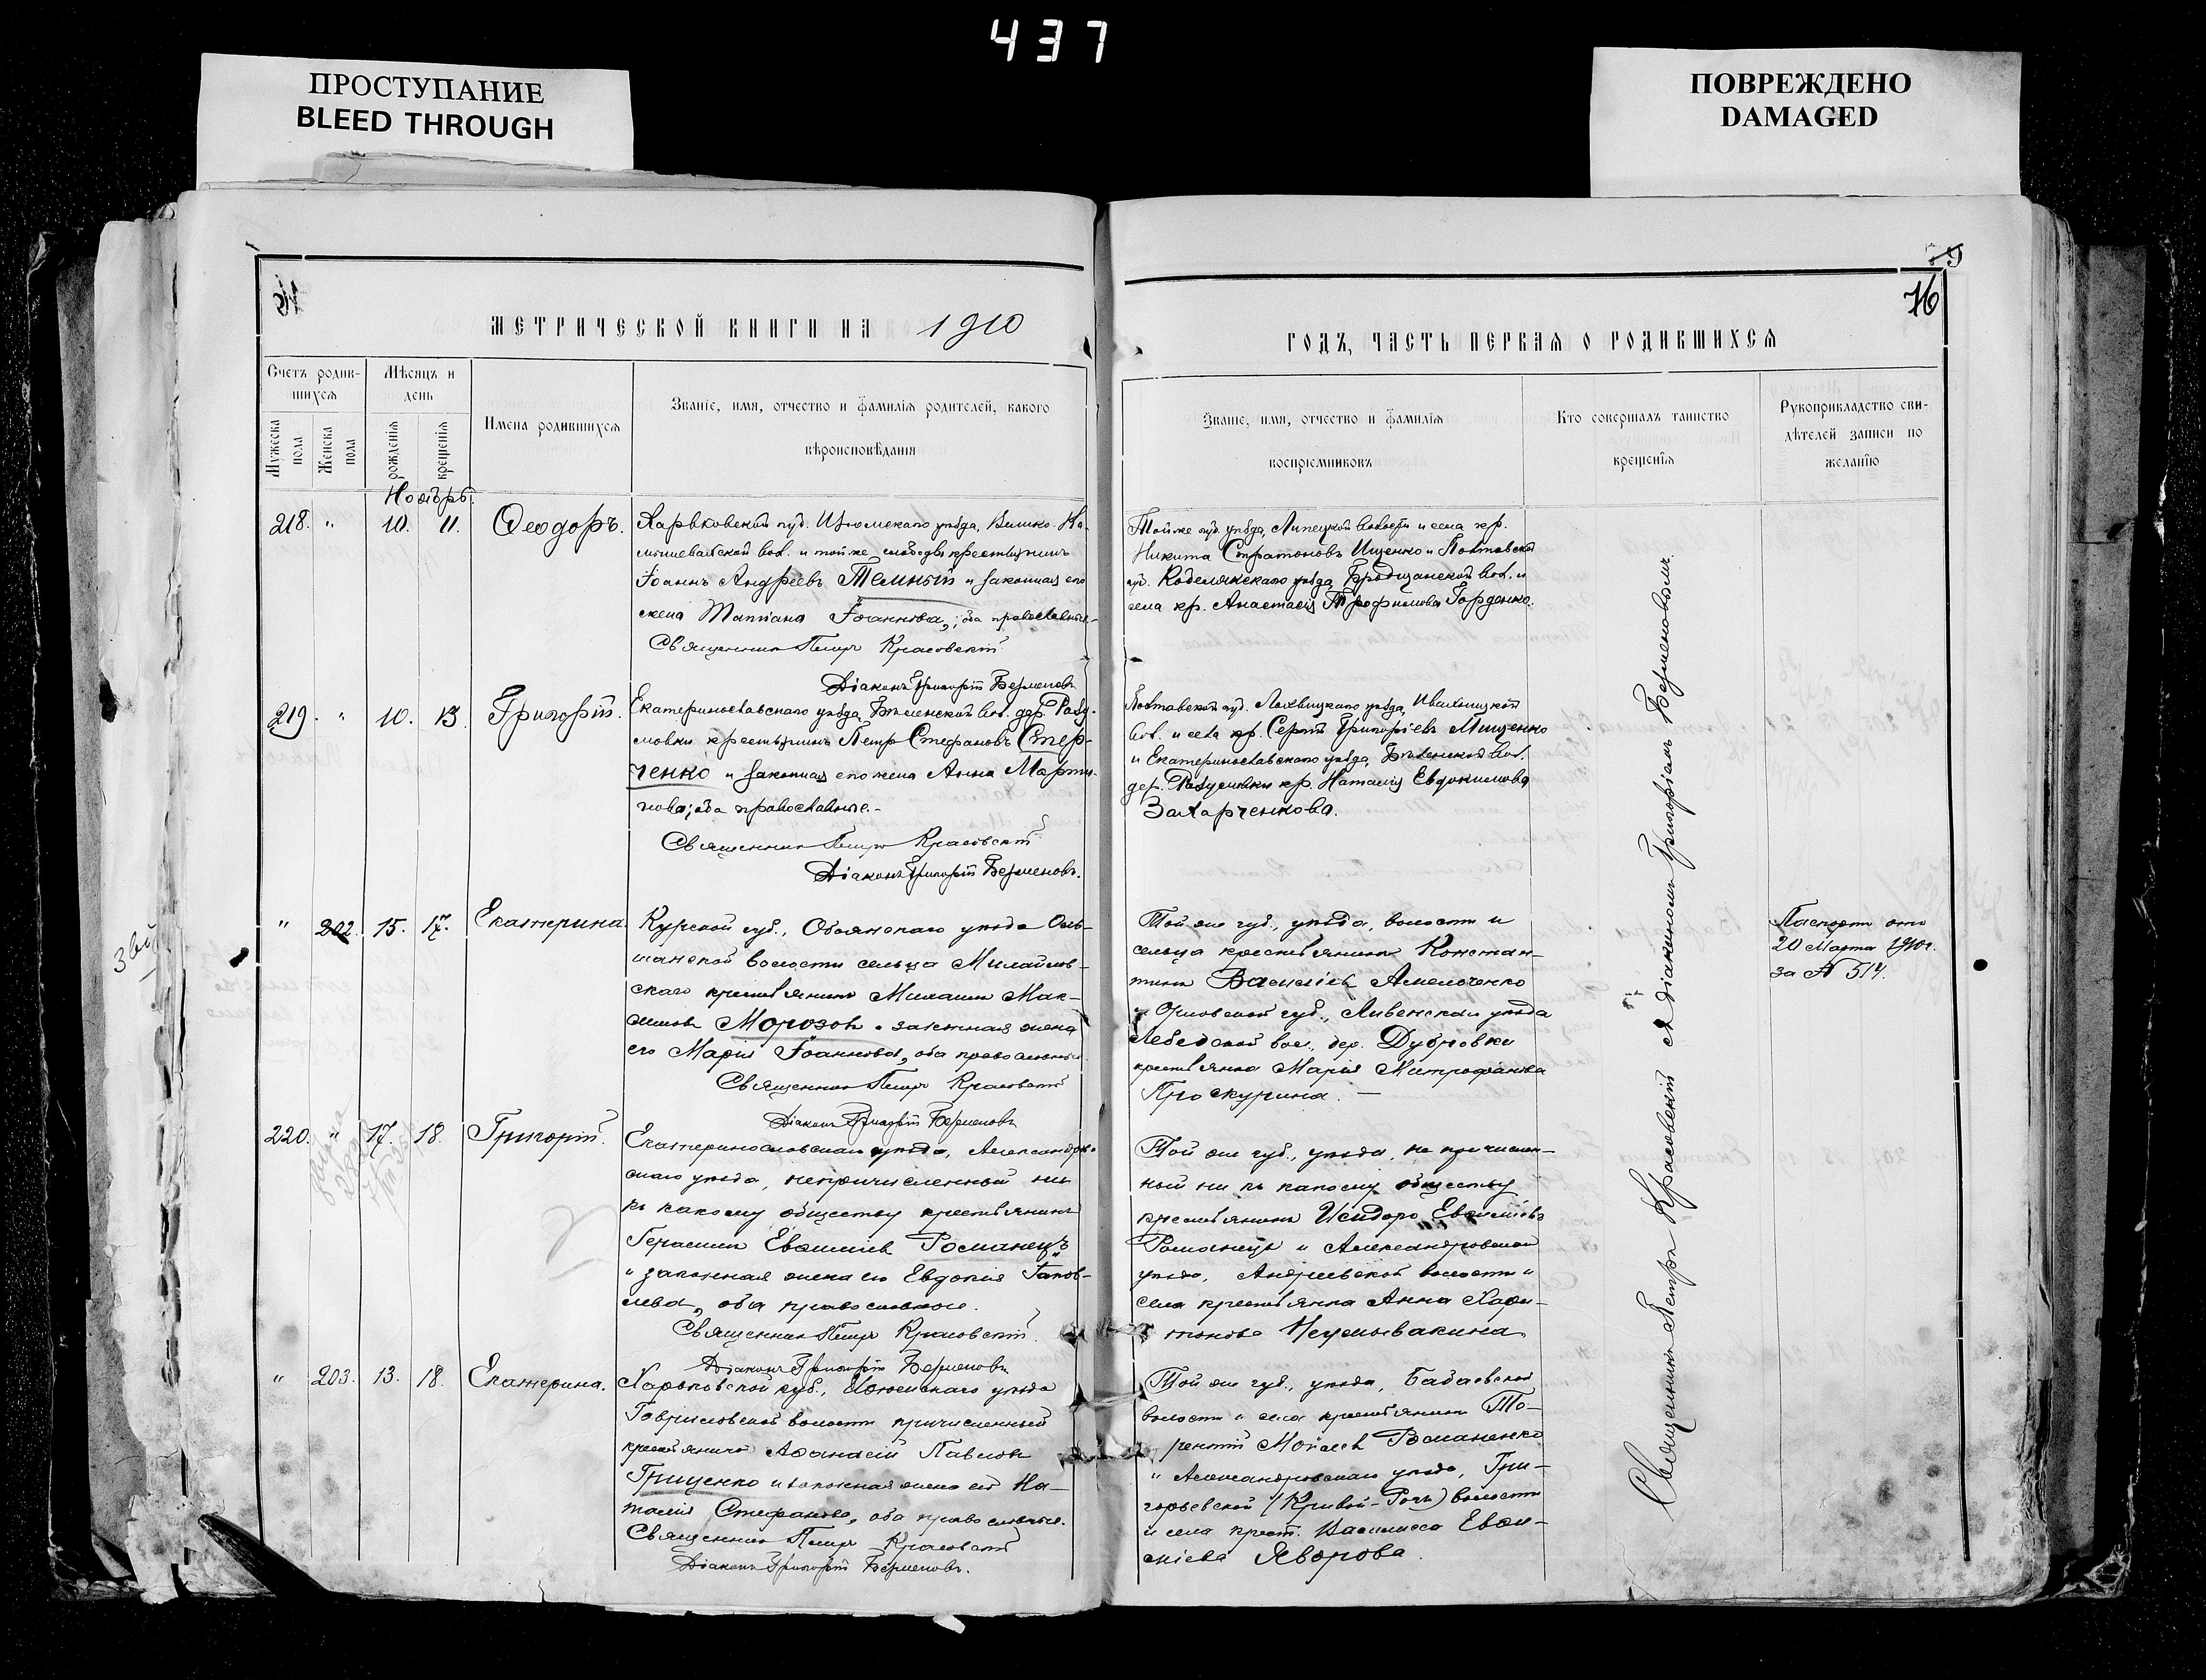 437
ПРОСТУПАНИЕ
BLEED THROUGH
ПОВРЕЖДЕНО
DAMAGED
МЕТРИЧЕСКОЙ КНИГИ НА 1910
Счетъ родив-
шихся
Мѣсяцъ и
день
Имена родившихся
Званіе, имя, отчество и фамилія родителей, какого
вѣроисповѣданія
Мужеска
пола
Женска
пола
рожденія
крещенія
Ноябрь.
218. " 10. 11. Ѳеодоръ.
Харьковской губ. Изюмскаго уѣзда,
вол. и той же слободы крестьянинъ
Іоаннъ Андреевъ Темный и законная его
жена Татіана Іоаннова, оба православные.
Священникъ Петръ Красовскій
Діаконъ Григорій Берменовъ
219. " 10. 13. Григорій.
Екатеринославскаго уѣзда, вол. дер. Разу-
мовки крестьянинъ Петръ Стефановъ Стер-
ченко и законная его жена Анна Марти-
нова, оба православные.-
Священникъ Петръ Красовскій
Діаконъ Григорій Берменовъ.
" 202. 15. 17. Екатерина.
Курской губ., Обоянскаго уѣзда Оль-
шанской волости сельца Михайлов-
скаго крестьянинъ Михаилъ Мак-
симовъ Морозовъ и законная жена
его Марія Іоаннова, оба православные
Священникъ Петръ Красовскій
Діаконъ Григорій Берменовъ
220. " 17. 18. Григорій.
Александров-
скаго уѣзда, непричисленный ни
къ какому обществу крестьянинъ
Герасимъ Евѳиміевъ Романецъ
и законная жена его Евдокія Іаков-
лева, оба православные.
Священникъ Петръ Красовскій.
Діаконъ Григорій Берменовъ
" 203. 13. 18. Екатерина.
Харьковской губ., Изюмскаго уѣзда
Гавриловской волости причисленный
крестьянинъ Аѳанасій Павловъ
Грищенко и законная жена его На-
талія Стефанова, оба православные.
Священникъ Петръ Красовскій
Діаконъ Григорій Берменовъ.
76
ГОДЪ, ЧАСТЬ ПЕРВАЯ О РОДИВШИХСЯ
Званіе, имя, отчество и фамилія
воспріемниковъ
Кто совершалъ таинство
крещенія
Рукоприкладство сви-
дѣтелей записи по
желанію
Той же губ. уѣзда, Липецкой волости и села кр.
Никита Стратоновъ Ищенко и Полтавской
губ. Кобелякскаго уѣзда, вол. и
села кр. Анастасія Трофимова Гордѣнко.
Полтавской губ. Лохвицкаго уѣзда,
вол. и села кр. Сергій Григоріевъ Мищенко
и Екатеринославскаго уѣзда, вол.
дер. Разумовки кр. Наталія Евдокимова
Захарченкова.
Той же губ., уѣзда, волости и
сельца крестьянинъ Констан-
тинъ Васильевъ Амельченко
и Орловской губ., Ливенскаго уѣзда
вол., дер. Дубровки
крестьянка Марія Митрофанова
Проскурина. —
Той же губ., уѣзда, не причислен-
ный ни къ какому обществу
крестьянинъ Исидоръ Евѳиміевъ
Романецъ и Александровскаго
уѣзда, Андреевской волости и
села крестьянка Анна Хари-
тонова Неумывакина
Той же губ., уѣзда,
волости и села крестьянинъ
Моисеевъ Романенко
и Александровскаго уѣзда, Гри-
горьевской (Кривой-Рогъ) волости
и села крест. Василисса Евѳи-
міева Яворова.
Священникъ Петръ Красовскій съ діакономъ Григоріемъ Берменовымъ.
Паспортъ отъ
20 Марта 1910г.
за № 514.